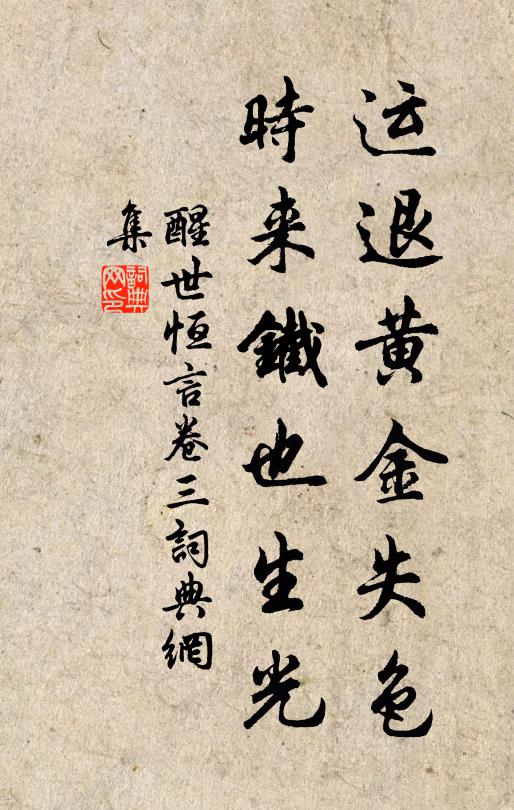 运退黄金失色
時来鐵也生光
醒世恒言卷三詞典網
集
詞典
网印